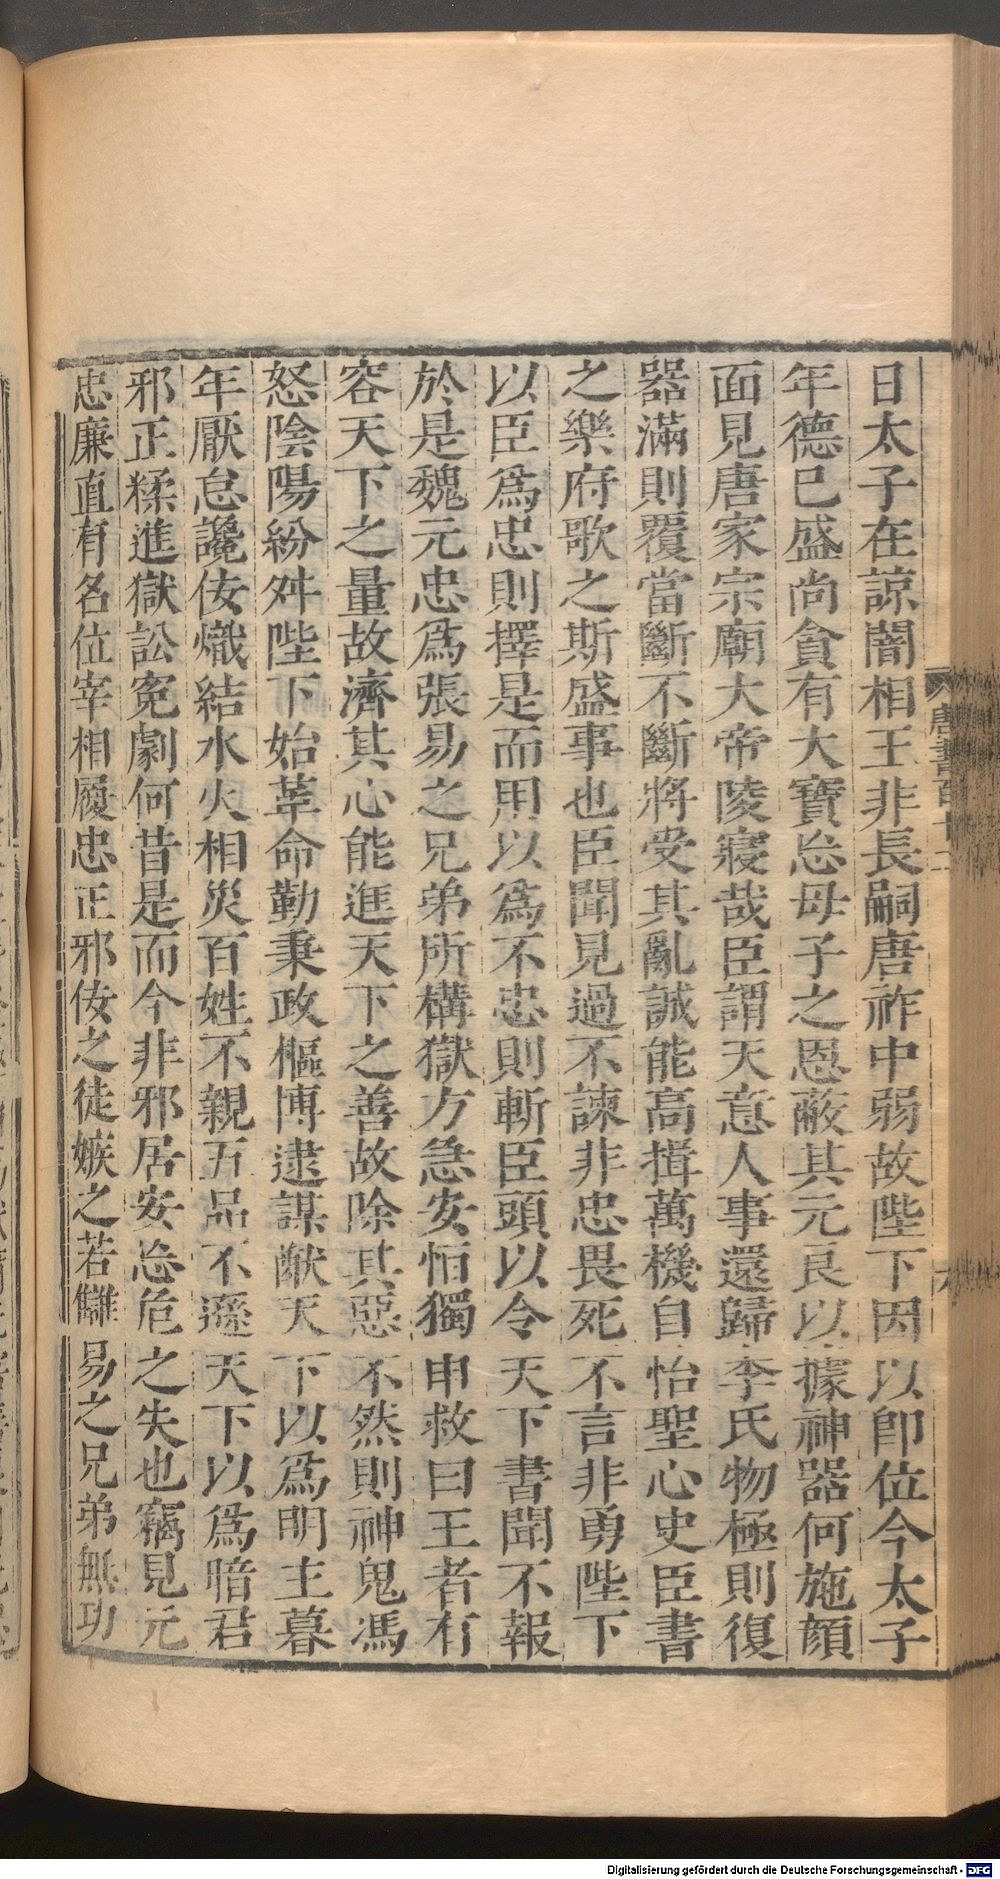 日太子在諒闇相王非長嗣唐祚中弱故陛下因以卽位今太子
年德已盛尚貪有大寶忩母子之恩蔽其元良以據神器何施顔
面見唐家宗廟大帝陵寢哉臣謂天意人事還歸李氏物極則復
器滿則覆當斷不斷將受其亂誠能高揖萬機自怡聖心史臣書
之樂府歌之斯盛事也臣聞見過不諫非忠畏死不言非勇陛下
以臣爲忠則擇是而用以爲不忠則斬臣頭以令天下書聞不報
於是魏元忠爲張易之兄弟所構獄方急安恒獨申救曰王者有
容天下之量故濟其心能進天下之善故除其惡不然則神鬼馮
怒陰陽紛舛陛下始革命勤秉政樞博逮謀猷天下以爲明主暮
年厭怠讒佞熾結水火相災百姓不親五品不遜天下以爲暗君
邪正糅進獄訟寃劇何昔是而今非邪居安忩危之失也竊見元
忠廉直有名位宰相履忠正邪佞之徒嫉之若讎易之兄弟無功
唐書百十二
六
Digitalisierung gefördert durch die Deutsche Forschungsgemeinschaft - DFG